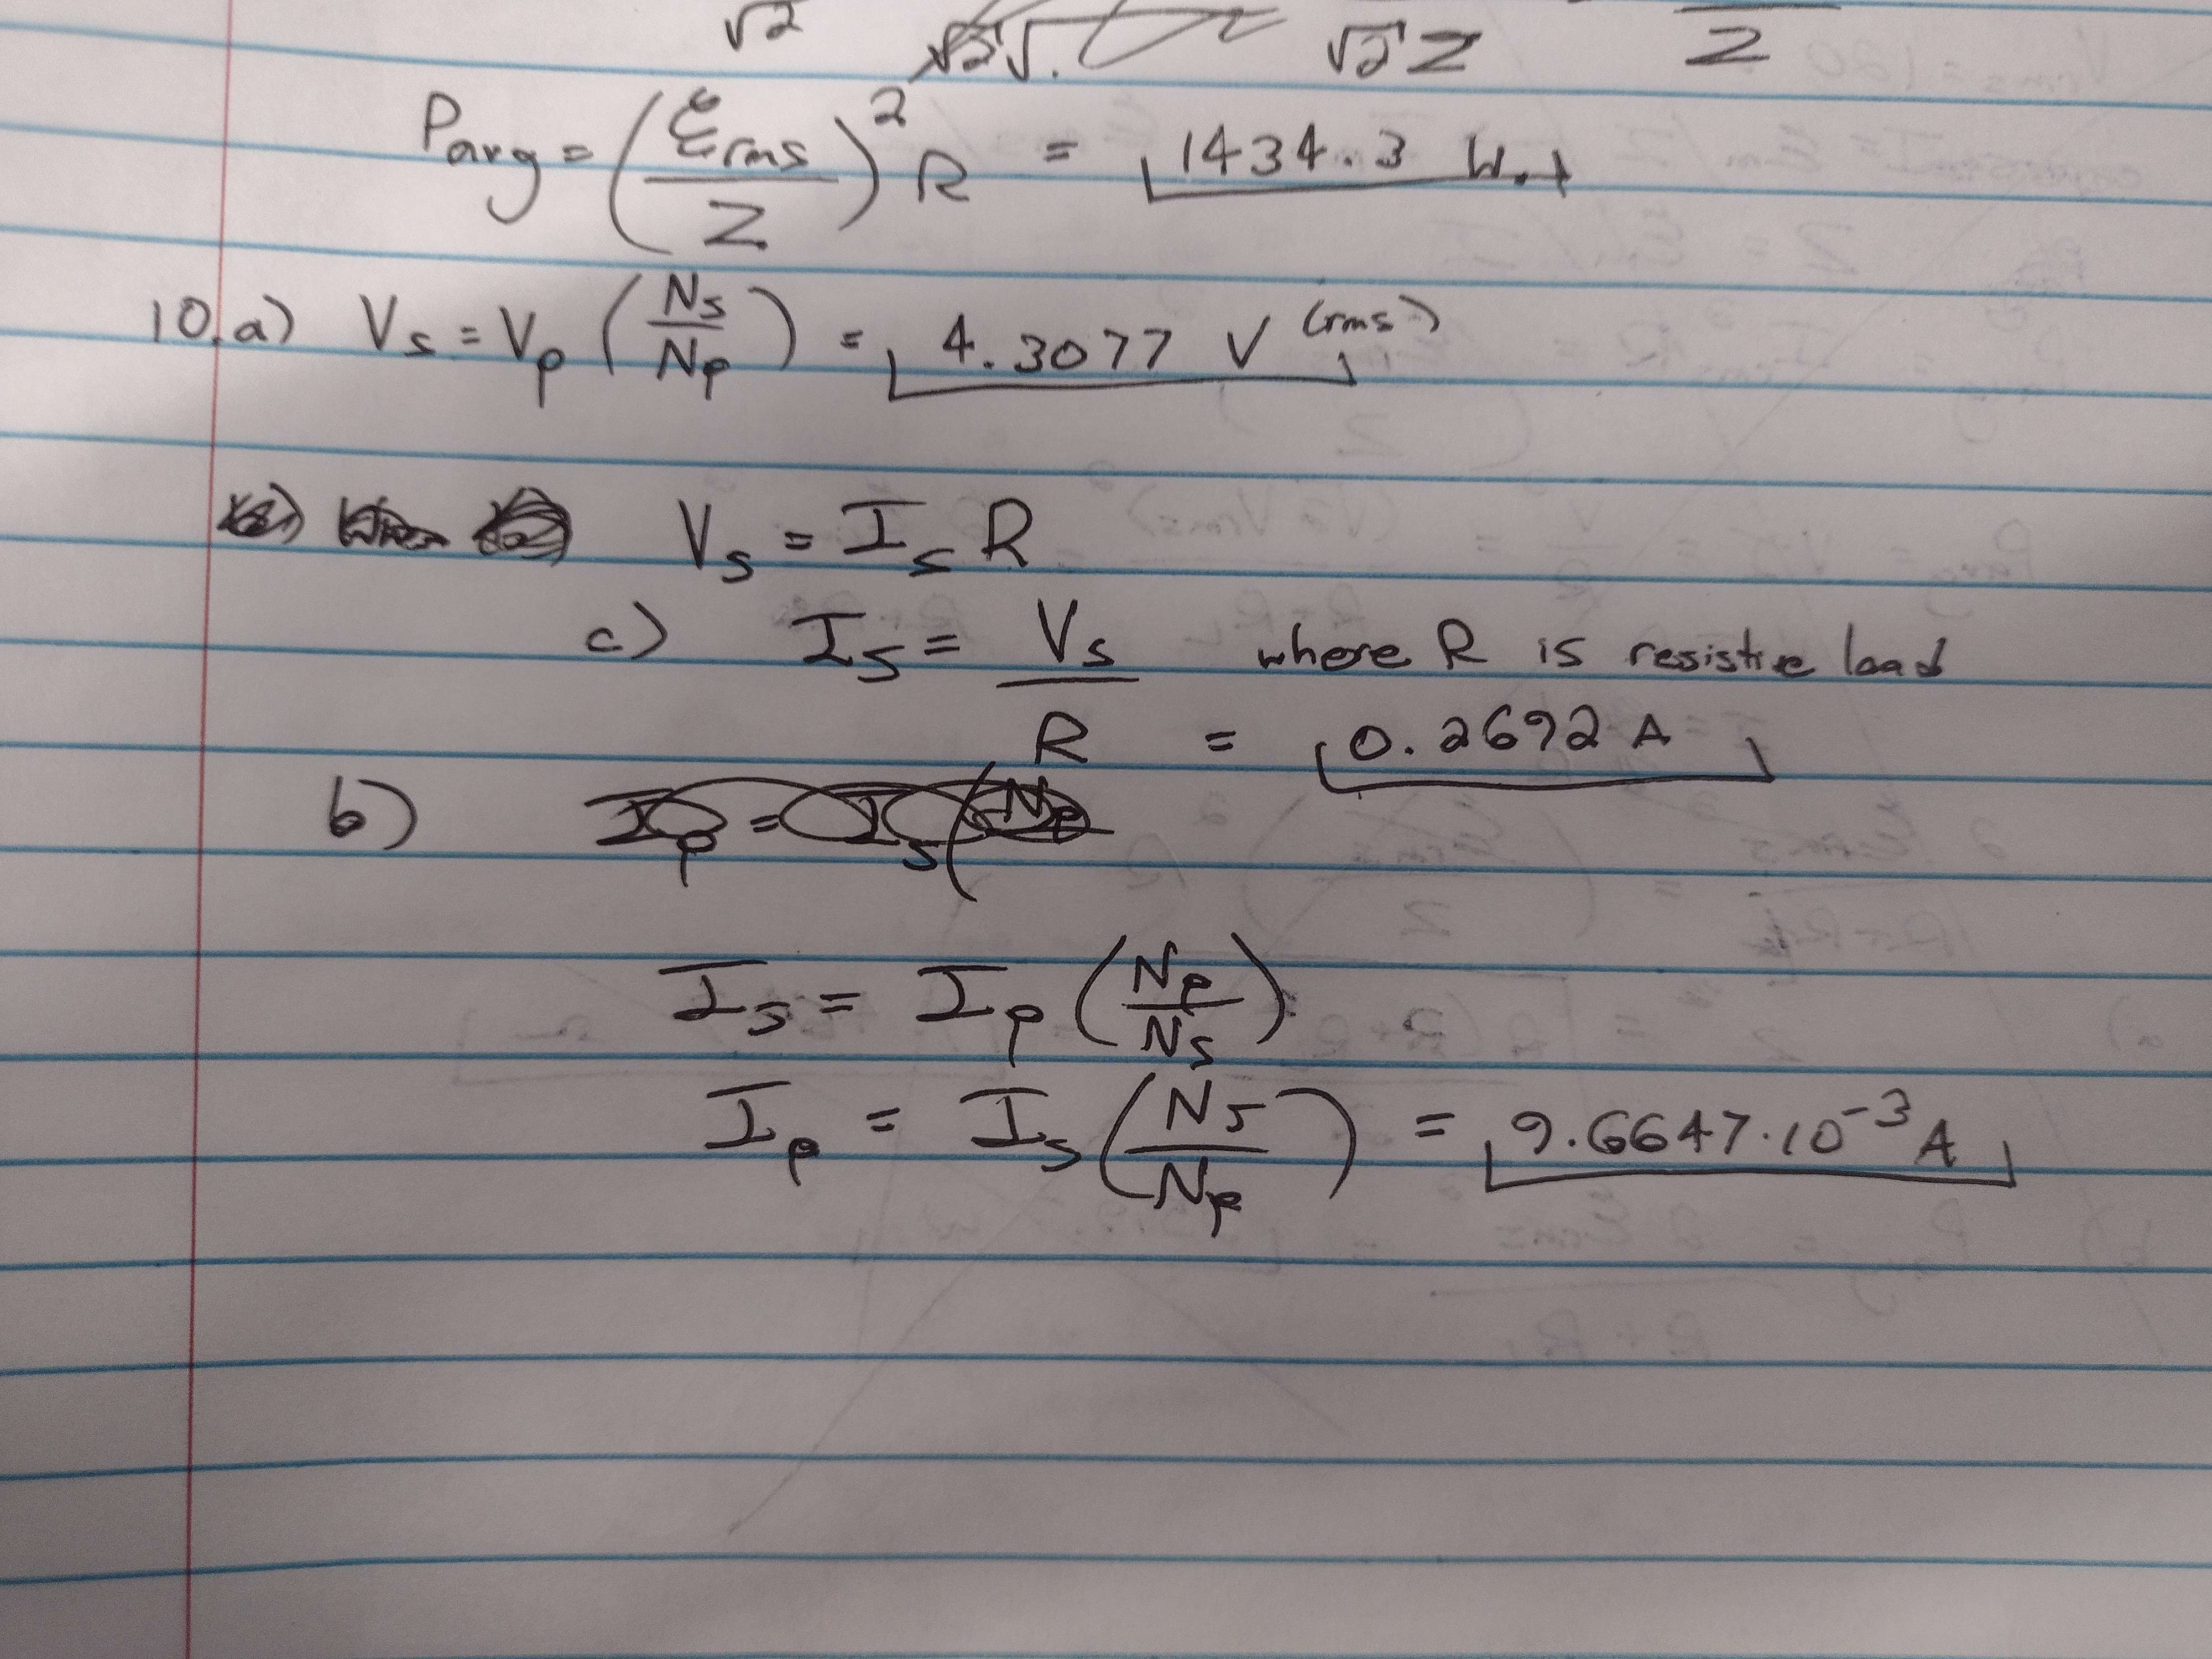 √2 √2 √2 Z Z
Pavg = (Ɛrms / Z)² R = 1434.3 W.
10.a) Vs = Vp (Ns / Np) = 4.3077 V (rms)
Vs = Is R
c) Is = Vs / R where R is resistive load
= 0.2692 A
b) Ip = Is (Np
Is = Ip (Np / Ns)
Ip = Is (Ns / Np) = 9.6647·10⁻³ A